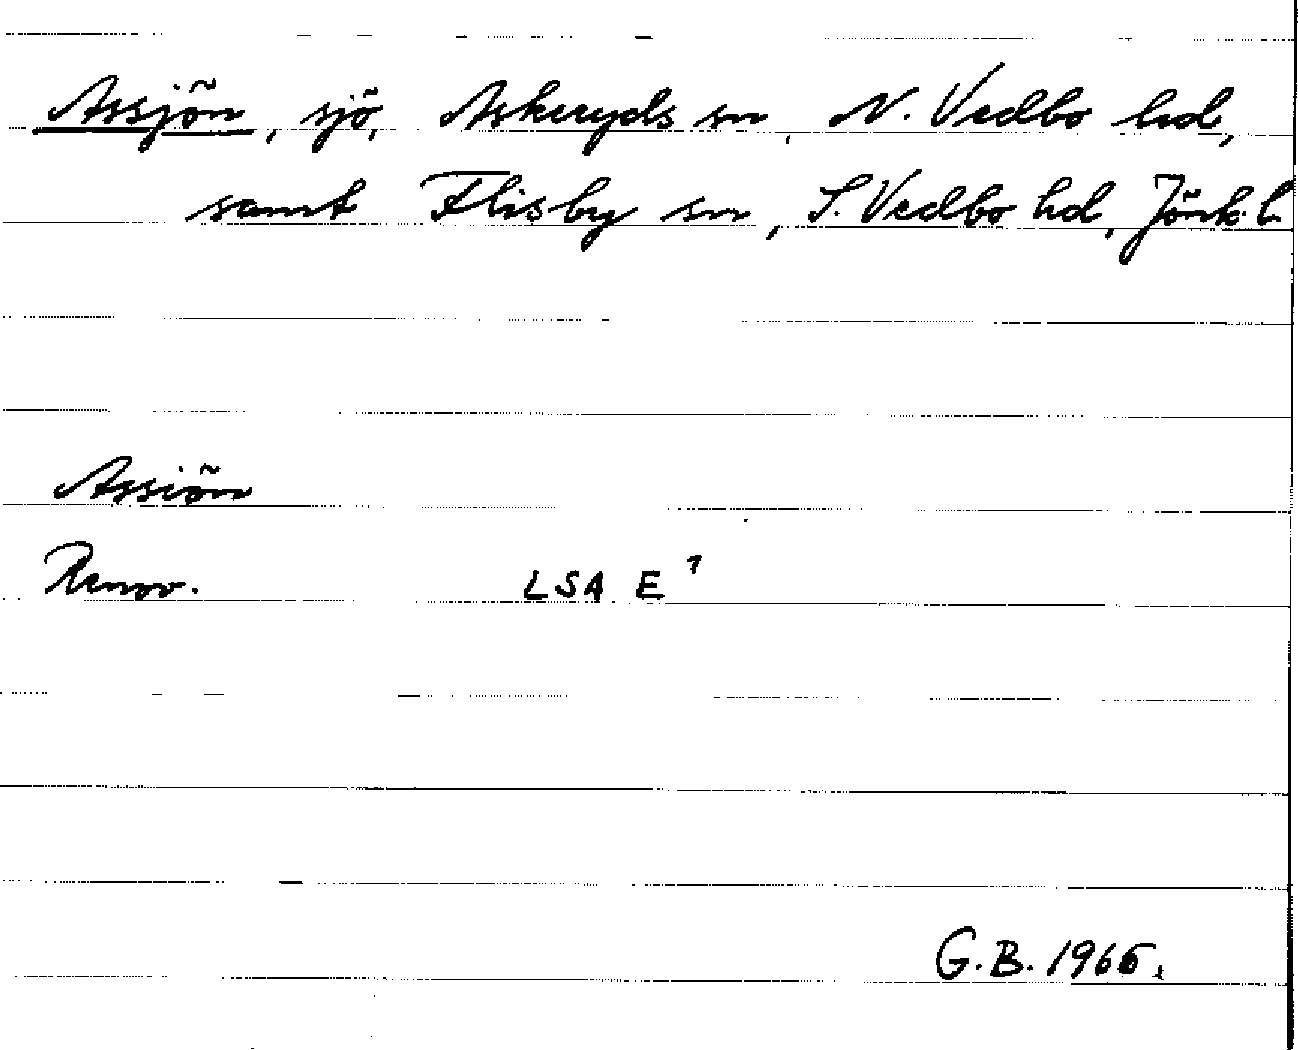 Assjön, sjö, Askeryds sn, N. Vedbo hd,
samt Flisby sn, S. Vedbo hd, Jönk. l.
Assiön
Renov. LSA E 1
G.B. 1966.